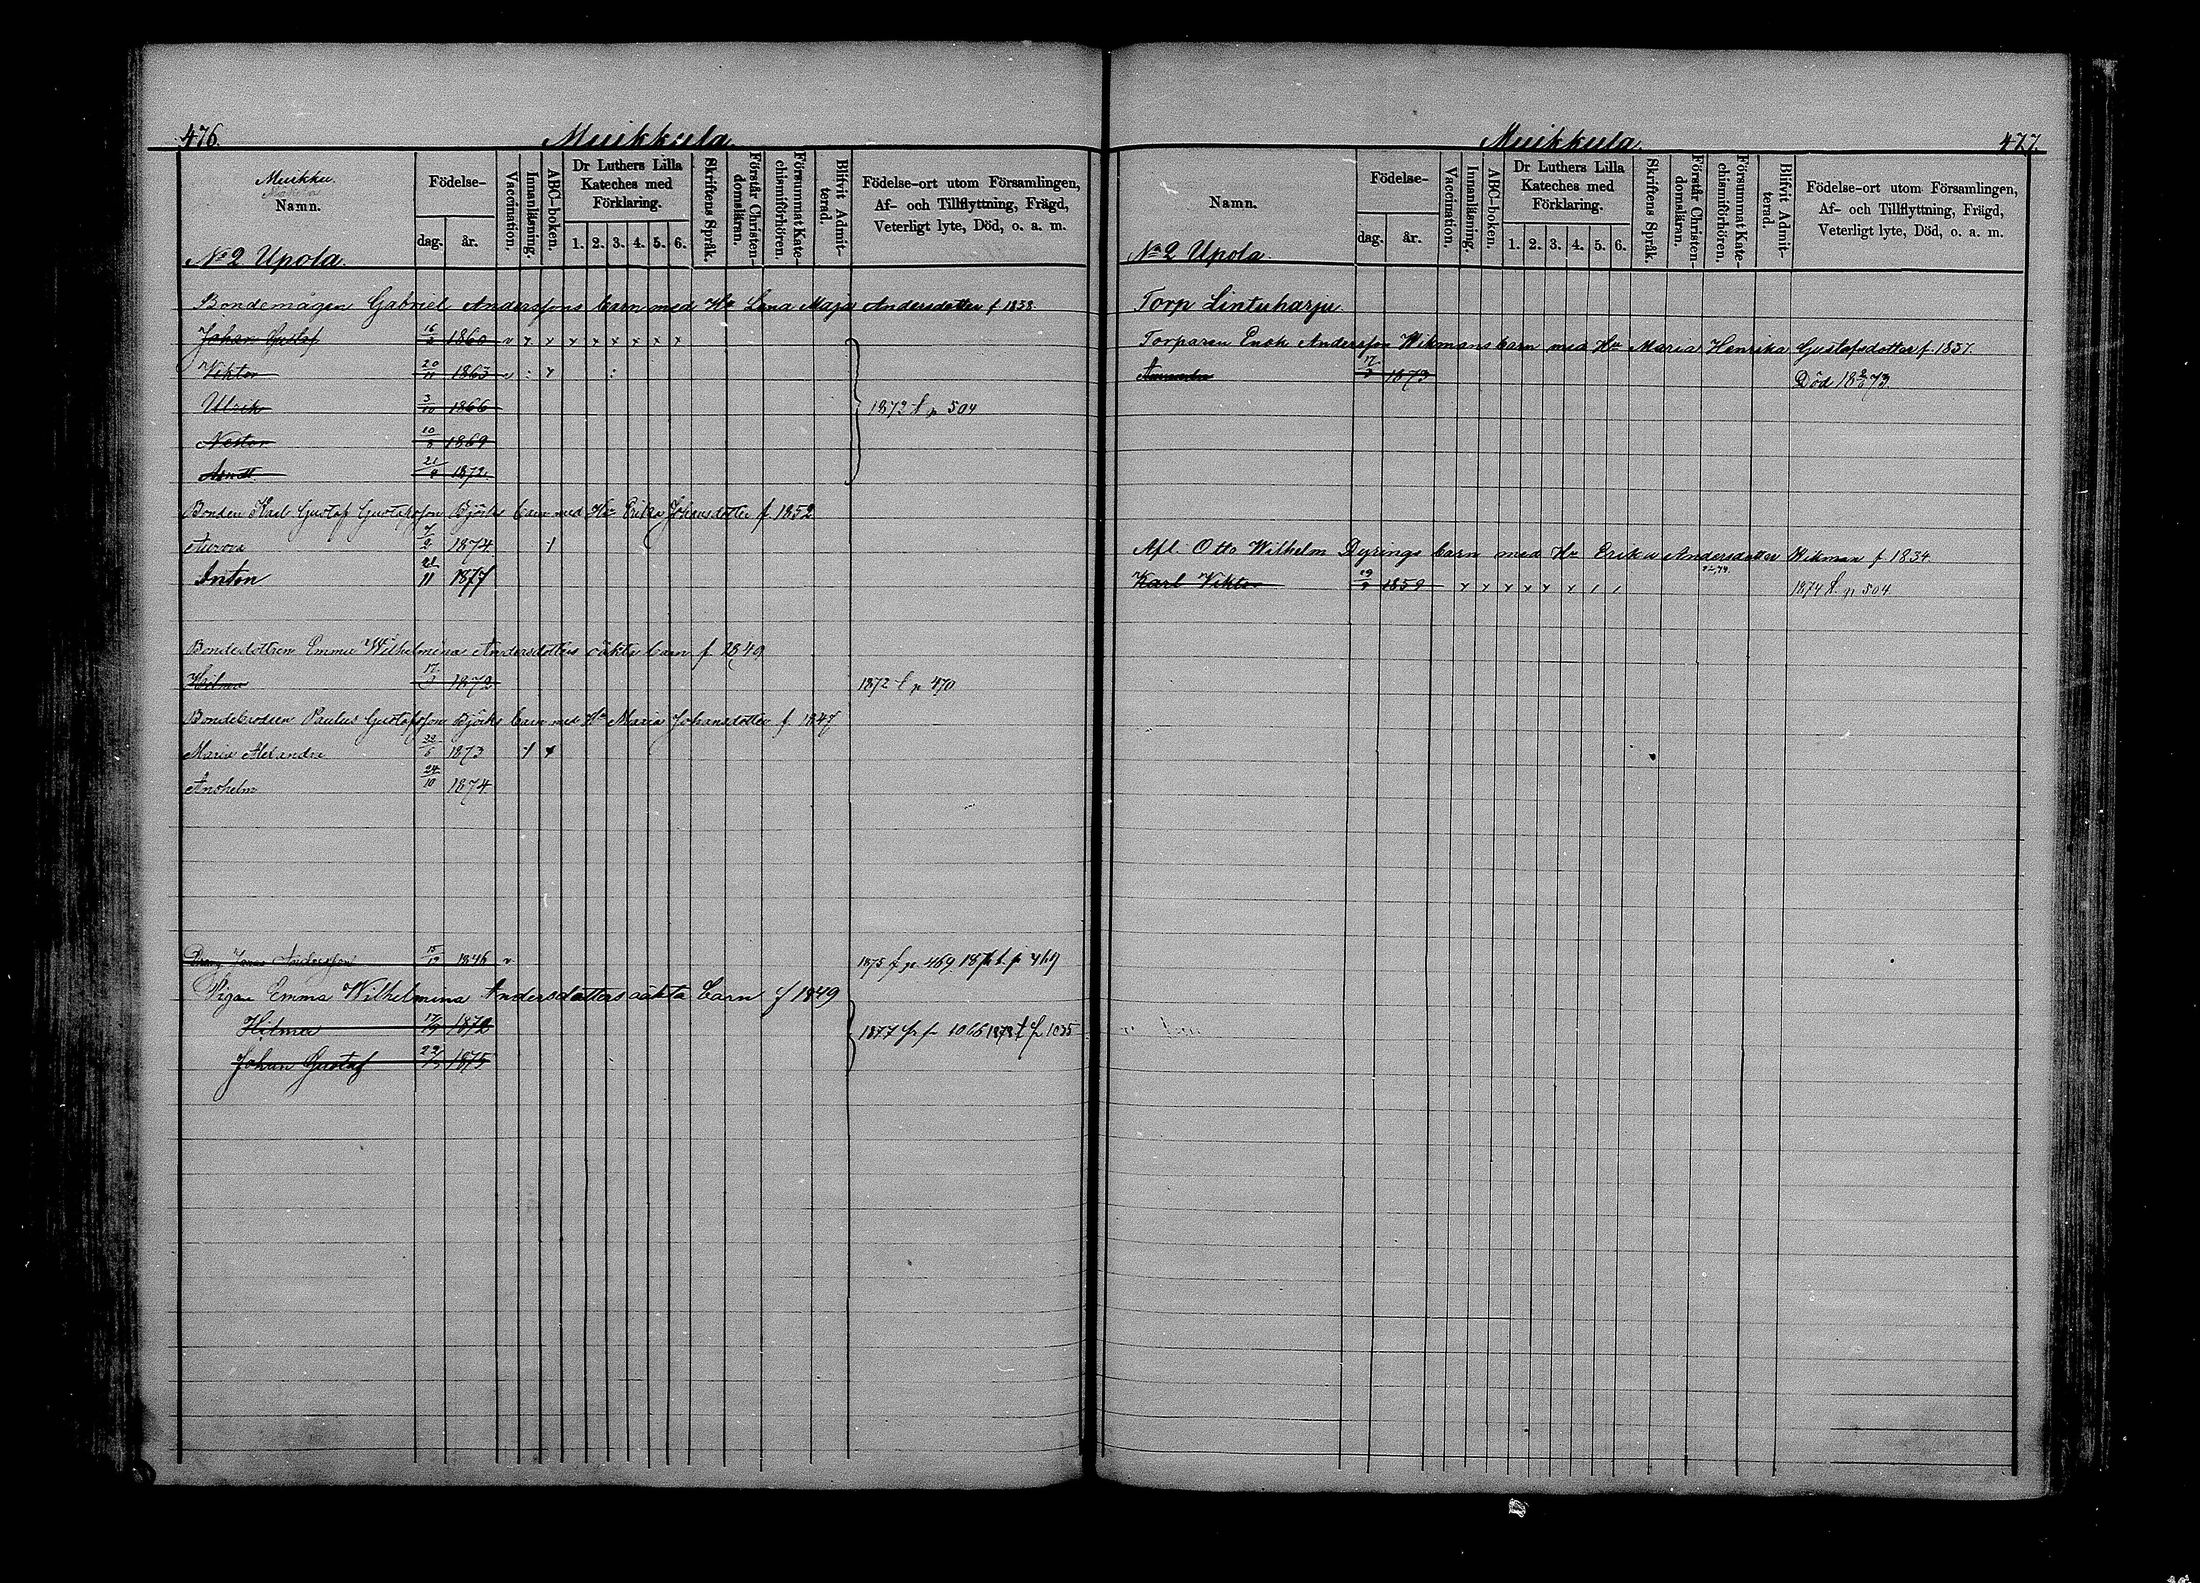 476.
Muikkula.
Muikku.
Namn.
Födelse-
dag. år.
Vaccination.
Innanläsning.
ABC-boken.
Dr Luthers Lilla Kateches med Förklaring.
1. 2. 3. 4. 5. 6.
Skriftens Språk.
Förstår Christendomsläran.
Försummat Katechismiförhören.
Blifvit Admitterad.
Födelse-ort utom Församlingen,
Af- och Tillflyttning, Frägd,
Veterligt lyte, Död, o. a. m.
No 2 Upola.
Bondemågen Gabriel Anderssons barn med Hu Lena Maja Andersdotter f 1838
Johan Gustaf 1860 v x x x x x x x x
Viktor 20/11 1863 v : x :
Ulrik 3/10 1866 1872 t p 504
Nestor 10/8 1869
21/9 1872
Bonden Karl Gustaf Gustafsson Björks barn med Hu Erika Johansdotter f 1852
Aurora 1874
Anton 1877
Bondedottren Emma Wilhelmina Andersdotters oäkta barn f 1849
Hilma 1872 1872 t p 470
Bondebrodren Paulus Gustafsson Björks barn med Hu Maria Johansdotter f 1847
Maria Alexandra 22/6 1873
Anshelm 24/10 1874
Dräng Jonas Andersson 15/12 1846 v 1875 f p. 469 187 t. p 469
Pigan Emma Wilhelmina Andersdotters oäkta barn f 1849
Hilma 1872 1877 fr p 1066 1878 t p 1035
Johan Gustaf 1875
Muikkula.
477.
Namn.
Födelse-
dag. år.
Vaccination.
Innanläsning.
ABC-boken.
Dr Luthers Lilla Kateches med Förklaring.
1. 2. 3. 4. 5. 6.
Skriftens Språk.
Förstår Christendomsläran.
Försummat Katechismiförhören.
Blifvit Admitterad.
Födelse-ort utom Församlingen,
Af- och Tillflyttning, Frägd,
Veterligt lyte, Död, o. a. m.
No 2 Upola
Torp Lintuharju.
Torparen Enok Andersson Wikmans barn med Hu Maria Henrika Gustafsdotter f. 1857.
Amanda 1873 Död 73
Afl. Otto Wilhelm Dyrings barn med Hu Erika Andersdotter Wikman f 1834.
Karl Viktor 1859 x x x x x x 1874 t. p 504